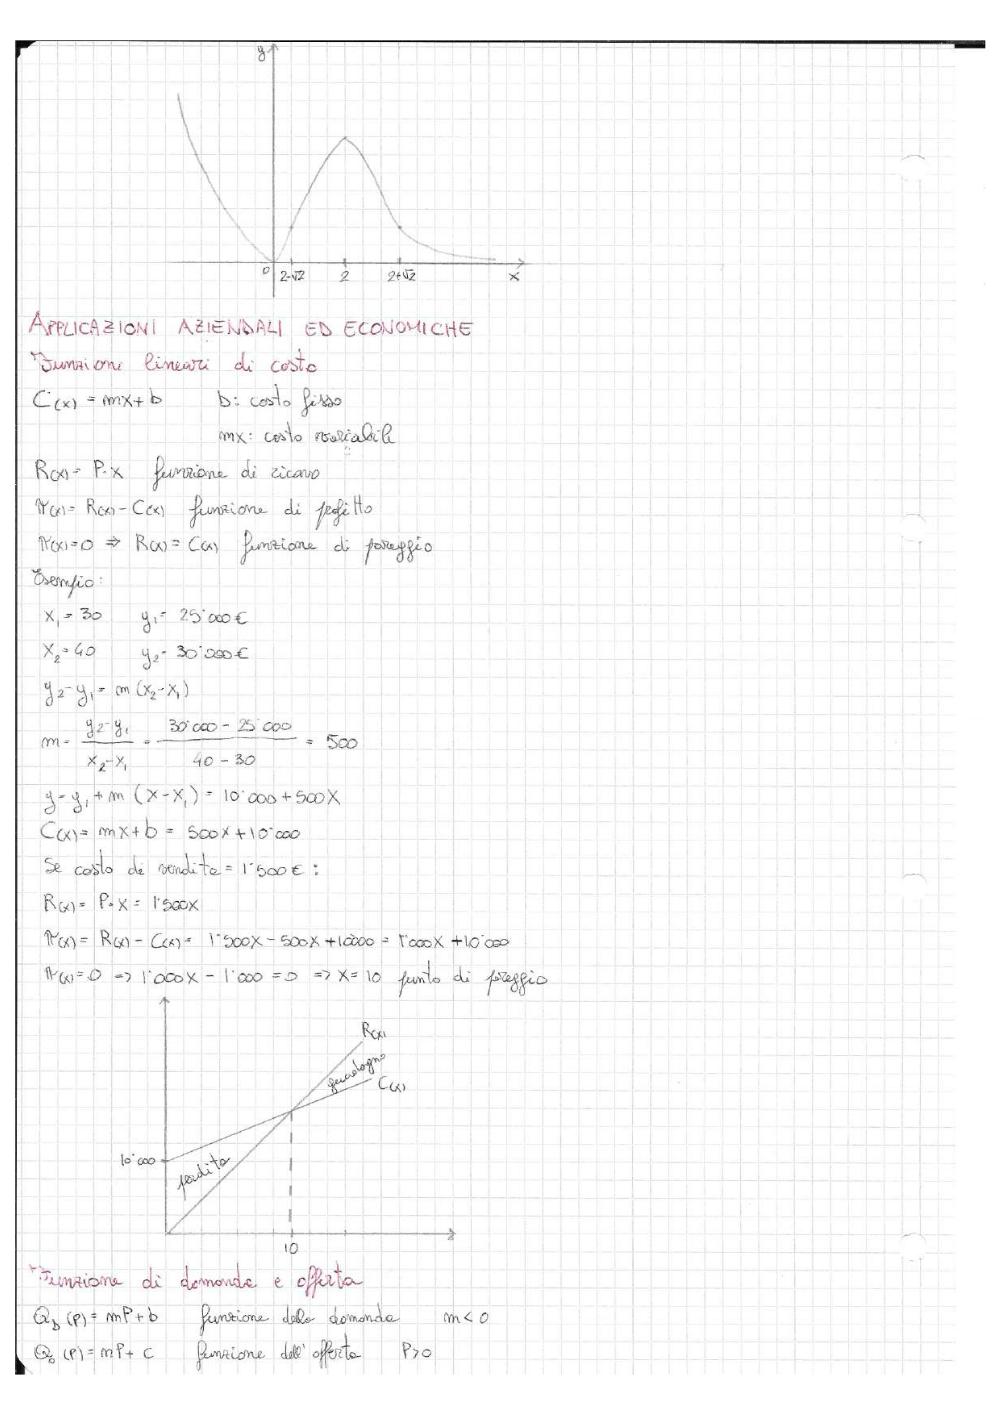 y
0 2-√2 2 2+√2 x
APPLICAZIONI AZIENDALI ED ECONOMICHE
Funzioni lineari di costo
C(x) = mx+b b: costo fisso
mx: costo variabile
R(x) = P·x funzione di ricavo
π(x) = R(x) - C(x) funzione di profitto
π(x)=0 ⇒ R(x) = C(x) funzione di pareggio
Esempio:
x₁ = 30 y₁ = 25'000€
x₂ = 40 y₂ = 30'000€
y₂-y₁ = m (x₂-x₁)
m = y₂-y₁ / x₂-x₁ = 30'000 - 25'000 / 40 - 30 = 500
y = y₁ + m (x-x₁) = 10'000 + 500x
C(x) = mx+b = 500x + 10'000
Se costo di vendita = 1'500€:
R(x) = P·x = 1'500x
π(x) = R(x) - C(x) = 1'500x - 500x + 10000 = 1'000x + 10'000
π(x) = 0 => 1'000x - 1'000 = 0 => x = 10 punto di preggio
R(x)
guadagno
C(x)
10'000
perdita
10
Funzione di domanda e offerta
Q_D (P) = mP + b funzione della domanda m < 0
Q_o (P) = mP + c funzione dell'offerta P>0